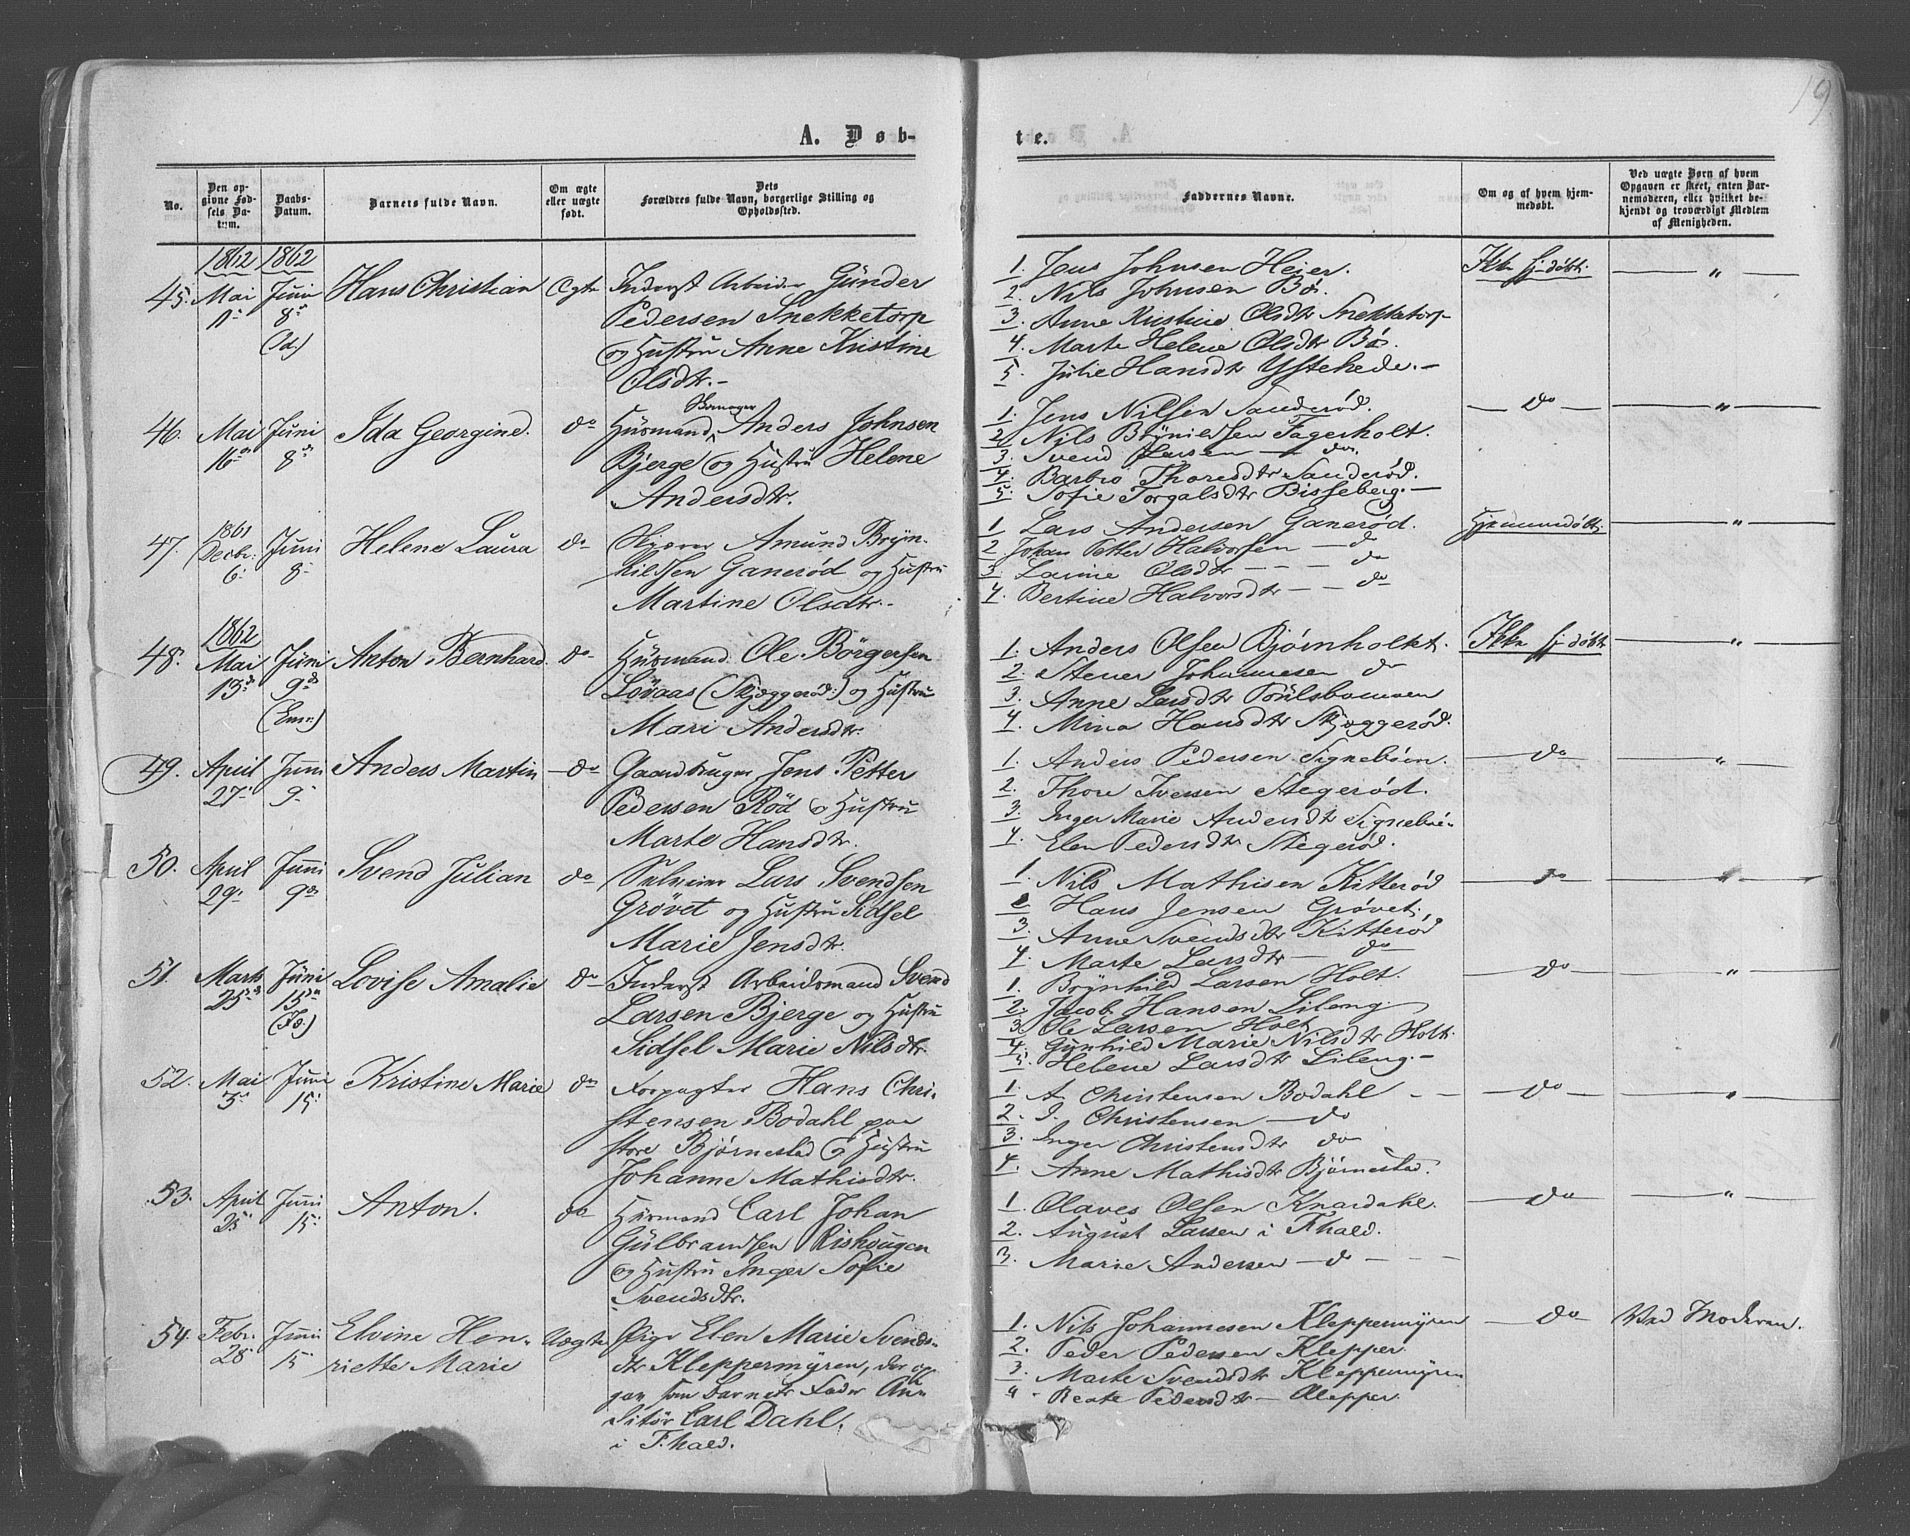 19
A. Døb-
te.
No.
Den op-
givne Fød-
sels Da-
tum.
Daabs-
Datum.
Barnets fulde Navn.
Om ægte
eller uægte
født.
Dets
Forældres fulde Navn, borgerlige Stilling og
Opholdssted.
Faddernes Navne.
Om og af hvem hjem-
medøbt.
Ved uægte Børn af hvem
Opgaven er skeet, enten Bar-
nemoderen, eller hvilket be-
kjendt og troværdigt Medlem
af Menigheden.
1862 1862
45. Mai Juni Hans Christian Ægte Inderst Arbeider Günder
11 8 Pedersen Snekketorp
(Id.) og Hustru Anne Kristine
Olsdtr.-
1. Jens Johnsen Heier. Ikke hj-døbt. — " —
2. Nils Johnsen Bø.
3. Anne Kristine Olsdtr Snekketorp
4. Marte Helene Olsdtr Bø.
5. Julie Hansdtr Ystehede.-
46. Mai Juni Ida Georgine. do Husmand Anders Johnsen
16 8 Bjerge og Hustru Helene
Andersdtr.
1. Jens Nilsen Sanderød. — do — — " —
2. Nils Brynildsen Fagerholt.
3. Svend Larsen — do.
4. Barbro Thoresdtr Sanderød.
5. Sofie Torgalsdtr Bisseberg.-
1861
47. Decbr. Juni Helene Laura do Amund Bryn-
6 8 hildsen Ganerød og Hustru
Martine Olsdtr.-
1. Lars Andersen Ganerød. Hjemmedøbt. — " —
2. Johan Petter Halvorsen — do
3. Larine Olsdtr - - - do
4. Bertine Halvorsdtr - - do
1862
48. Mai Juni Anton Bernhard. do Husmand Ole Börgersen
13 9 Løvaas (Skjæggerød) og Hustru
(Em.) Mari Andersdtr.
1. Anders Olsen Bjørnholkt. Ikke hj døbt — " —
2. Stener Johannesen do
3. Anne Larsdtr
4. Mina Hansdtr Skjæggerød.
49. April Juni Anders Martin — do Gaardbruger Jens Petter
27 9 Pedersen Rød og Hustru
Marte Hansdtr.
1. Anders Pedersen Signebøen. — do — — " —
2. Thore Iversen Stegerød.
3. Inger Marie Andersdtr Signebø-
4. Elen Pedersdtr Stegerød.
50. April Juni Svend Julian do Selveier Lars Svendsen
29 9 Grøvet og Hustru Sidsel
Marie Jensdtr.
1. Nils Mathisen Kitterød — do — — " —
2. Hans Jensen Grøvet.
3. Anne Svendsdtr Kitterød
4. Marte Larsdtr — do
51. Marts Juni Lovise Amalie do Inderst Arbeidsmand Svend
25 15 Larsen Bjerge og Hustru
(Id.) Sidsel Marie Nilsdtr.
1. Brynhild Larsen Holt. — do — — " —
2. Jacob Hansen Lileng.
3. Ole Larsen Holt
4. Gunhild Marie Nilsdtr Holt.
5. Helene Larsdtr Lileng.-
52. Mai Juni Kristine Marie do Forpagter Hans Chri-
3 15 stensen Bodahl paa
store Bjørnestad og Hustru
Johanne Mathisdtr.
1. A. Christensen Bodahl - - — do — — " —
2. J. Christensen — do
3. Inger Christensdtr do
4. Anne Mathisdtr Bjørnestad.
53. April Juni Anton. do Husmand Carl Johan
25 15 Gulbrandsen Rishaugen
og Hustru Inger Sofie
Svendsdtr.
1. Olaves Olsen Knardahl. — do — — " —
2. August Larsen i Fhald.
3. Marie Andersen — do - - -
54. Febr. Juni Elvine Hen- Uægte Pige Elen Marie Svends-
28 15 riette Marie dtr Kleppermyren, der op-
gav som Barnets Fader
Carl Dahl,
i F.hald.
1. Nils Johannesen Kleppermyren — do — Ved Moderen.
2. Peder Pedersen Klepper.
3. Marte Svendsdtr Kleppermyren
4 - Beate Pedersdtr — Klepper.